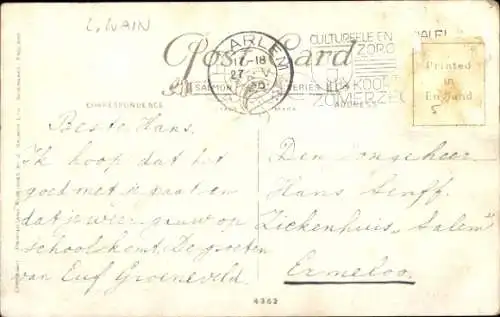 L. WAIN
Post Card
HAARLEM
17-18
27 V
CULTUREELE EN
ZORG
KOOPT
ZOMERZEGELS
SALMON SERIES
Printed
in
England
5
CORRESPONDENCE
ADDRESS
Beste Hans.
Ik hoop dat het
goed met je gaat en
dat je weer gauw op
school komt. De groeten
van Euf Groeneveld.
Den Jongeheer
Hans Senff.
Ziekenhuis „Salem"
Ermeloo.
4362